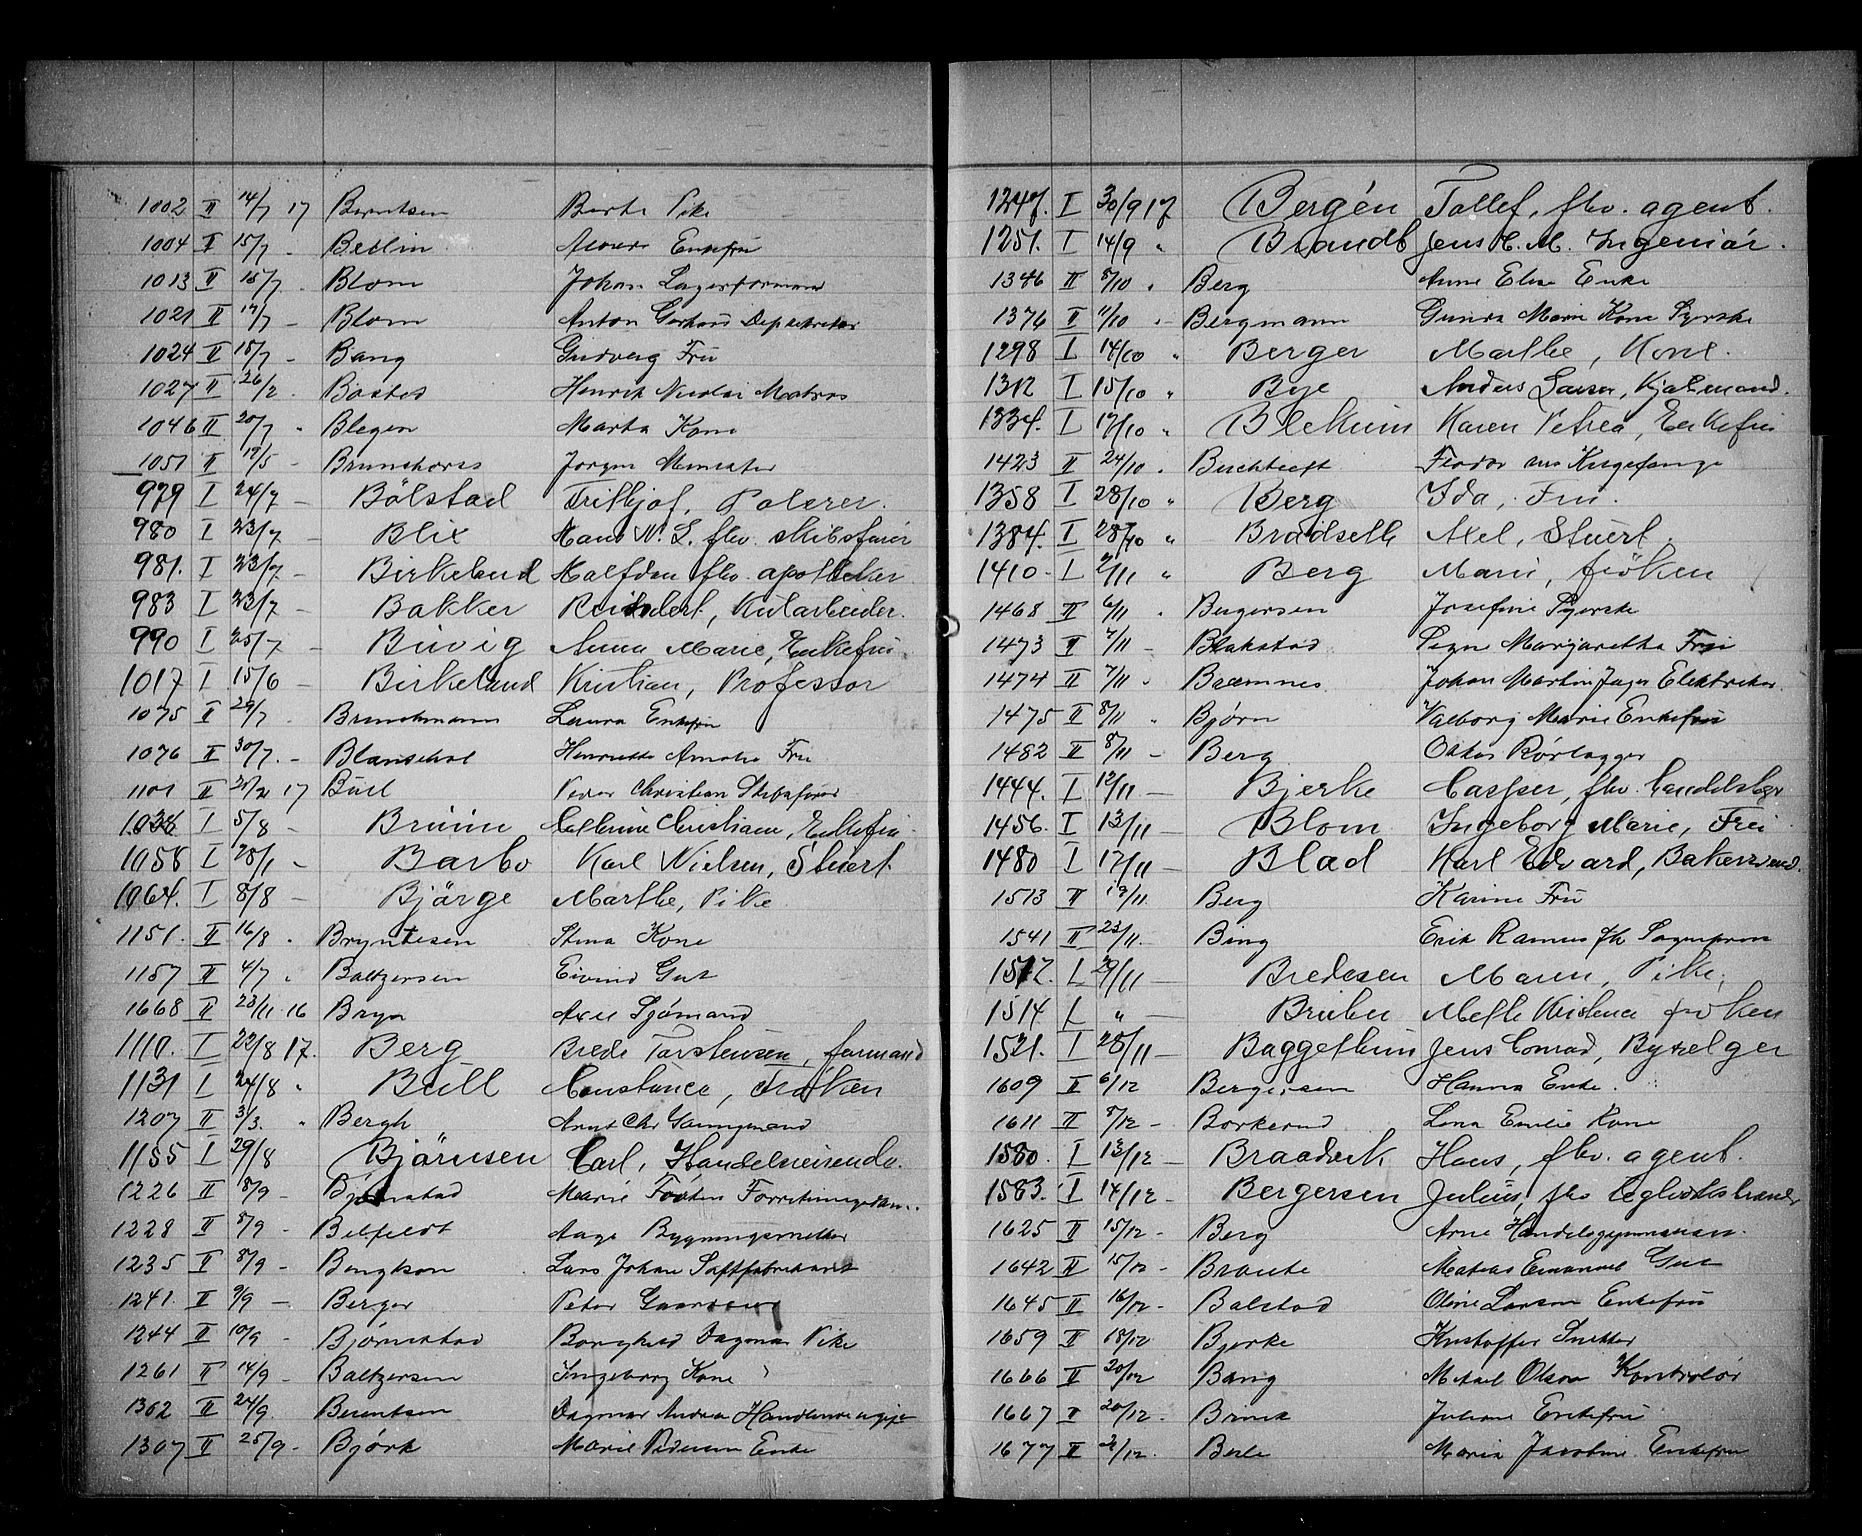 1002 II 14/7 17 Berntsen Berte Pike
1004 II 15/7 - Bellin Enkefru
1013 II 15/7 . Blom Johan Lagerformand
1021 II 17/7 - Blom Anton Gerhard
1024 II 18/7 - Bang Gudverg Fru
1027 II 26/2 . Bastes Henrik Nicolai Matros
1046 II 20/7 " Blegen Marta Kone
1051 II 19/5 - Brunshorss Jørgen
979 I 24/7 - Bölstad Frithjof, Polerer.
980 I 23/7 - Blix Hans N. S. fhv. skibsfører
981. I 23/7 - Birkelund Halfdan fhv. apotheker
983 I 23/7 - Bakker Reindert, Kutarbeider.
990 I 25/7 - Buvig Anna Marie, Enkefru
1017 I 15/6 - Birkeland Kristian, Professor
1075 II 29/7 . Brunchmann Laura Enkefru
1076 II 30/7 . - Blanschat Henriette Amalie Fru
1101 II 17 Buel Peder Christian Skibsfører
I 5/8 - Bruun Cathrine Christiane, Enkefru
1058 I 28/1 - Barbo Karl Nielsen, Stuert.
1064. I 8/8 - Bjärge Marthe, Pike
1151. II 16/8 . Bryntesen Stina Kone
1157 II 4/7 " Baltzersen Eivind Gut
1668 II 23/11 16 Bryn Axel Sjømand
1110. I 22/8 17. Berg Brede Torstensen, formand
1131 I 24/8 " Bull Constance, Frøken
1207 II 3/3. " Bergh Arnt Chr
1155 I 29/8 Björnsen Carl, Handelsreisende.
1226 II 8/9 - Bjørnstad Marie
1228 II 8/9 - Belfeldt Aage Bygningssnekker
1235 II 8/9 - Bengtson Lars Johan Saftfabrikant
1241. II 9/9 - Berger Peter
1244 II 10/9 - Bjørnstad Borghild Dagmar Pike
1261 II 14/9 - Baltzersen Ingeborg Kone
1302 II 24/9. Berentsen Dagmar Andrea
1307 II 25/9 - Bjørk Marie Pedersen Enke
1247. I 30/9 17 Bergén Tollef, fhv. agent.
1251. I 14/9 " Brandt Jens H. M. Ingeniör.
1346 II 8/10 " Berg Anne Elise Enke
1376 II 11/10 - Bergmann Gunda Marie Kone Syerske
1298 I 14/10 " Berger Marthe, Kone.
1312 I 15/10 " Bye Anders Larsen, Kjølemand.
1334. I 17/10 " Blekum Karen Petrea, Enkefru
1423 II 24/10 . Buchtreft Feodor
1358 I 28/10 " Berg Ida, Fru.
1384. I 28/10 " Bradseth Axel, Stuert.
1410 - I 2/11 " Berg Marie, fröken
1468 II 6/11 . Bergersen Josefine Syerske
1473 II 7/11 - Blakstad Signe Margaretha Fru
1474 II 7/11 . Bræmnes Johan Martin Elektriker
1475 II 8/11 " Bjørn Valborg Marie Enkefru
1482 II 8/11 - Berg Oskar Rørlegger
1444. I 12/11 - Bjerke Casper, fhv.
1456. I 13/11 - Blom Ingeborg Marie, Frei
1480 I 17/11 - Blad Karl Edvard,
1513 II 19/11 Berg Karine Fru
1541 II 23/11. Bing Erik
I 29/11 - Bredesen Maren, Pike,
1514. I " - Bruber Mette Kristence fröken
1521. I 28/11 - Baggethun Jens Conrad, Byselger
1609 II 6/12 Bergersen Hanna Enke.
1611 II 8/12 - Borkerud Lena Emilie Kone
1580. I 13/12 - Braadvik Hans, fhv. agent.
1583. I 14/12 - Bergersen Julius, fhv
1625 II 15/12 - Berg Arne
1642 II 15/12 - Braute Mateas Emanuel Gut
1645 II 16/12 - Balstad Oline Larsen Enkefru
1659 II 18/12 Bjerke Kristoffer Snekker
1666 II 20/12 Bang Mikael Olsen Kontrolör
1667 II 20/12. Brink Juliane Enkefru
1677 II 21/12. Berle Maria Jacobine Enkefru